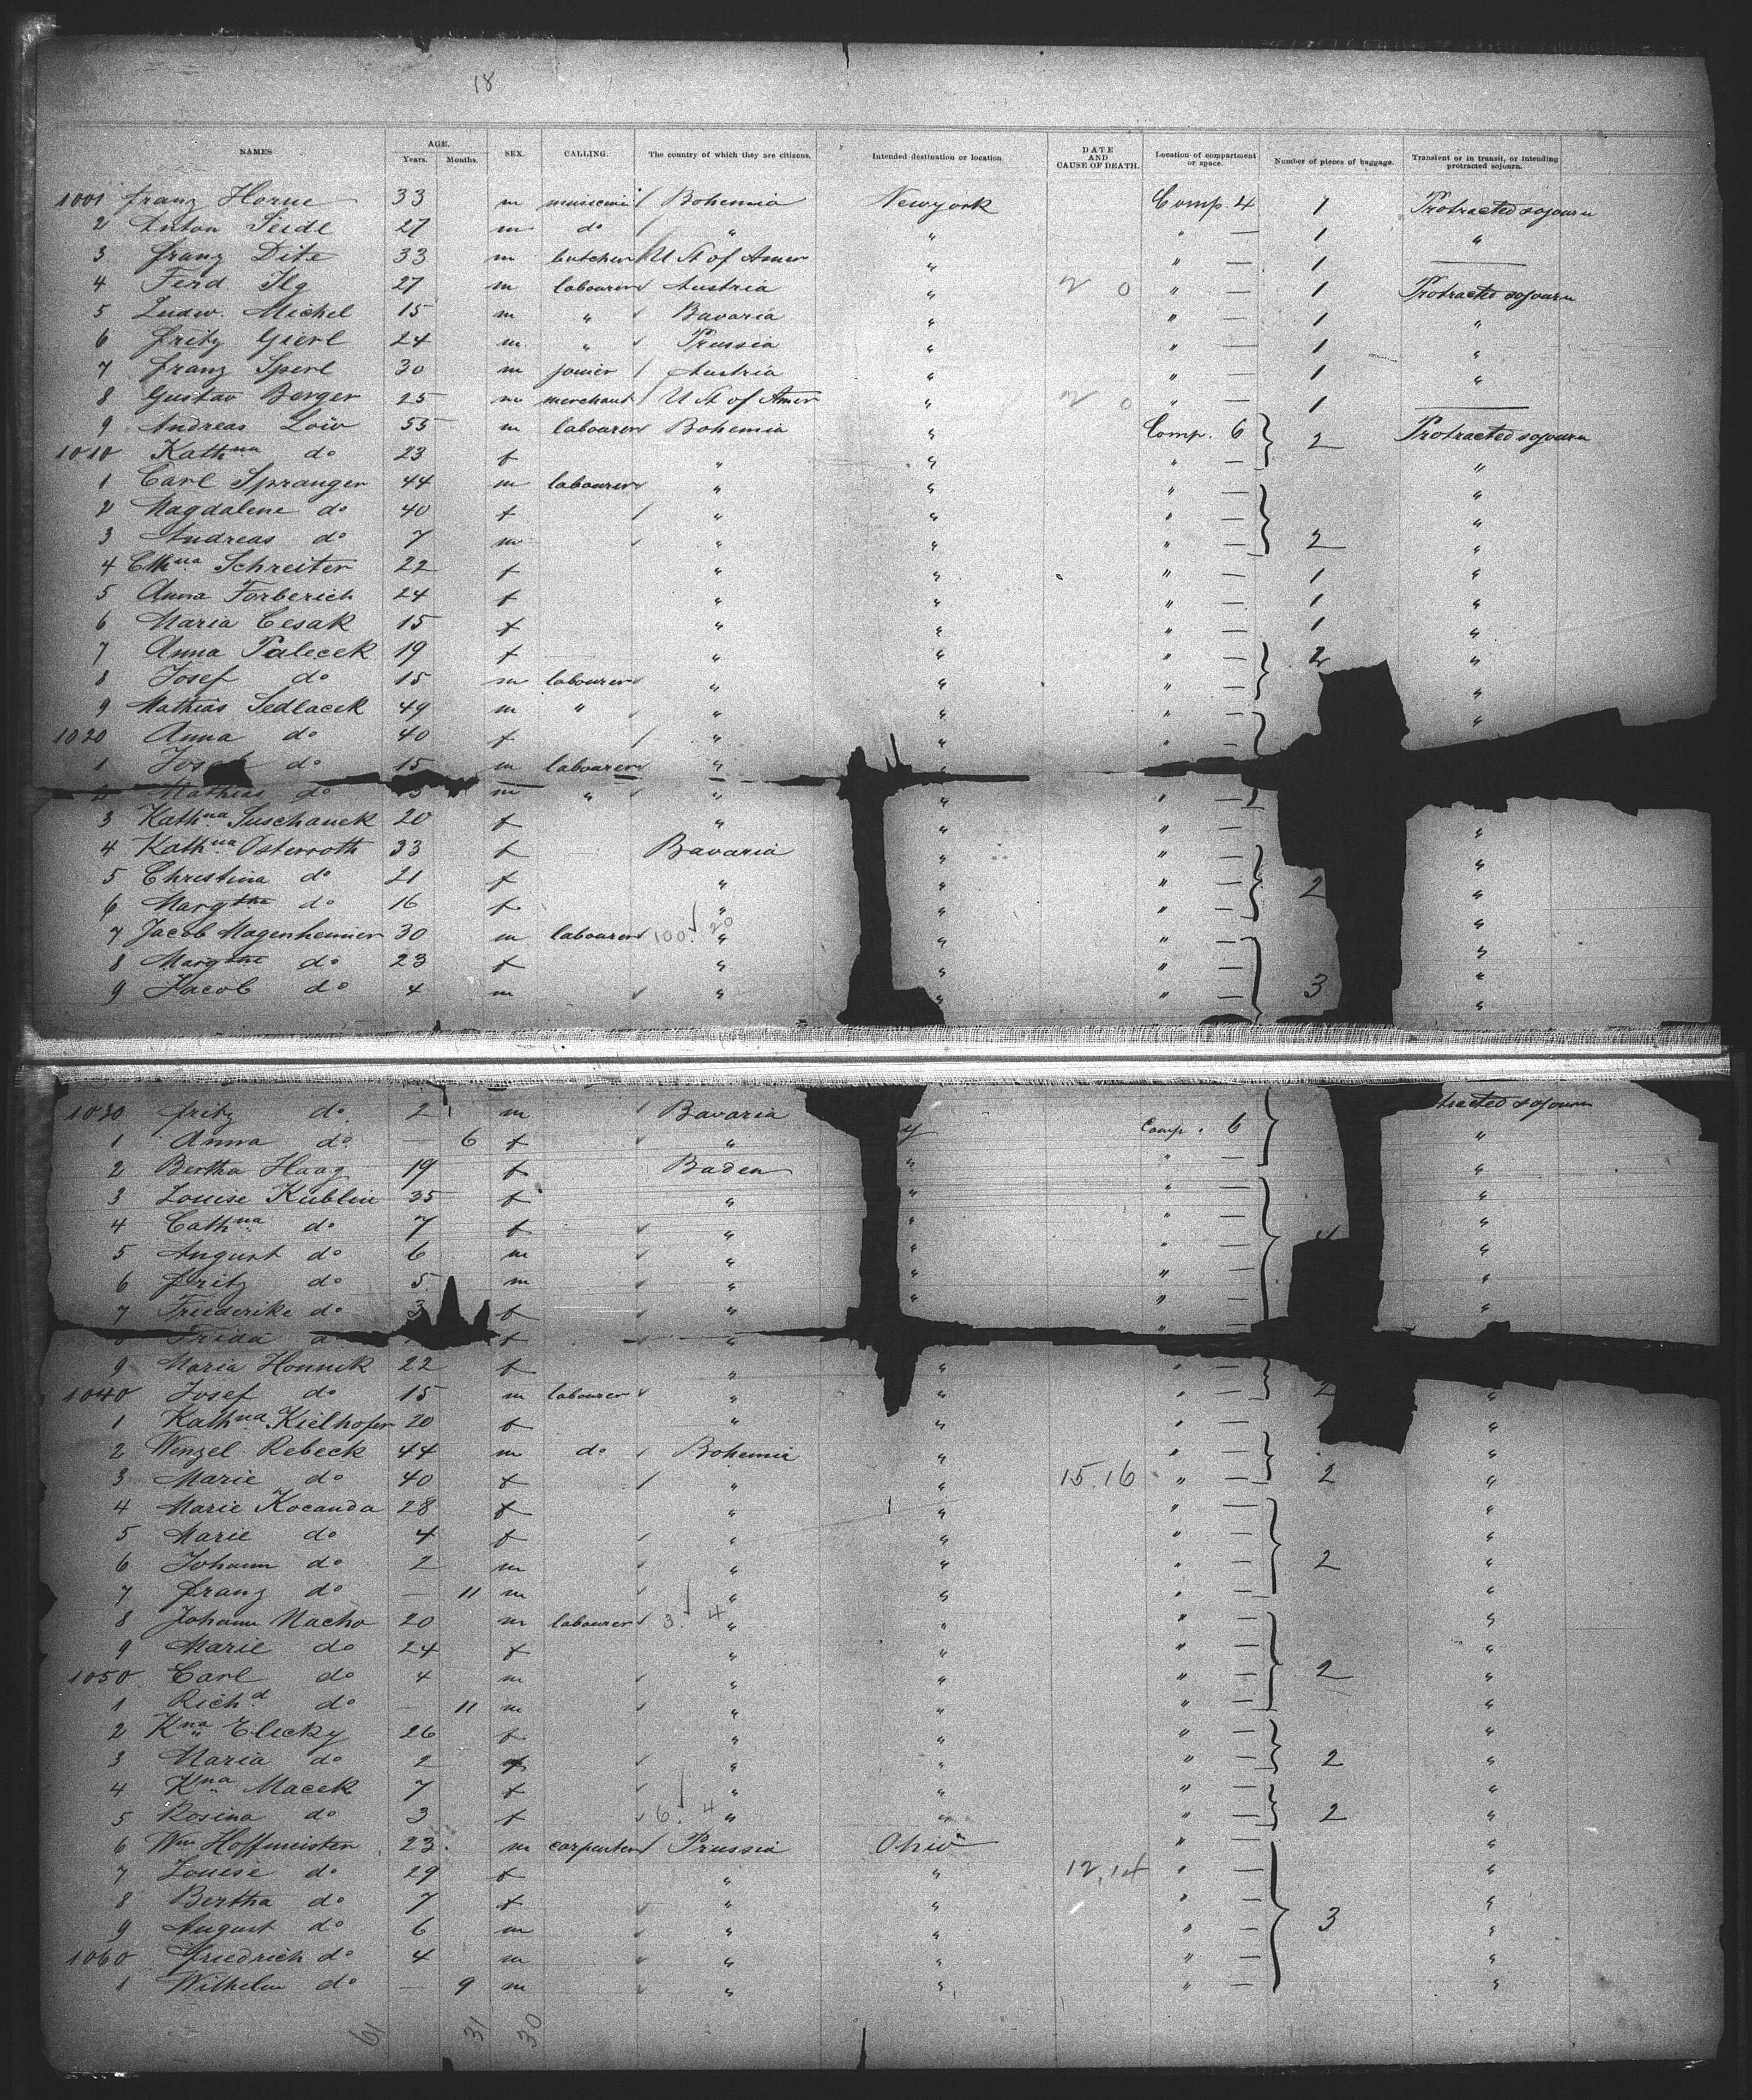 18
NAMES AGE. Years. Months. SEX. CALLING. The country of which they are citizens. Intended destination or location DATE AND CAUSE OF DEATH. Location of compartment or space. Number of pieces of baggage. Transient or in transit, or intending protracted sojourn.
1001 Franz Horne 33 m musician Bohemia Newyork Comp. 4 1 Protracted sojourn
2 Anton Seidl 27 m do " " " — 1 "
3 Franz Dite 33 m butcher U St of Amer " " — 1 —
4 Ferd. Ilg 27 m labourer Austria " 2 0 " — 1 Protracted sojourn
5 Ludw. Michel 15 m " Bavaria " " — 1 "
6 Fritz Gierl 24 m " Prussia " " — 1 "
7 Franz Sperl 30 m joiner Austria " " — 1 "
8 Gustav Berger 25 m merchant U St of Amer " 2 0 " — 1 —
9 Andreas Löw 55 m labourer Bohemia " Comp. 6 2 Protracted sojourn
1010 Kathna do 23 f " " " — "
1 Carl Spranger 44 m labourer " " " — "
2 Magdalene do 40 f " " " — "
3 Andreas do 7 m " " " — 2 "
4 Cthna Schreiter 22 f " " " — 1 "
5 Anna Forberich 24 f " " " — 1 "
6 Maria Cesak 15 f " " " — 1 "
7 Anna Palecek 19 f " " " — 2 "
8 Josef do 15 m labourer " " " — "
9 Mathias Sedlacek 49 m " " " " — "
1020 Anna do 40 f " " " —
1 Josef do 15 m labourer " "
2 Mathias do m " " " " —
3 Kathna Suschanek 20 f " " " — "
4 Kathna Osterroth 33 f Bavaria " " — "
5 Christina do 21 f " " " — 2 "
6 Margthe do 16 f " " " — "
7 Jacob Magenheimer 30 m labourer 100. 20 " " — "
8 Margthe do 23 f " " " — "
9 Jacob do 4 m " " " — 3 "
1030 Fritz do 2 m Bavaria tracted sojourn
1 Anna do — 6 f " y Comp. 6 "
2 Bertha Haag 19 f Baden " " — "
3 Louise Küblin 35 f " " " — "
4 Cathna do 7 f " " " — "
5 August do 6 m " " " — "
6 Fritz do 5 m " " " — "
7 Friederike do 3 f " " " — "
8 Frida f " "
9 Maria Honnik 22 f " " " —
1040 Josef do 15 m labourer " " " — 2 "
1 Kathna Kielhofer 20 f " " " — "
2 Wenzel Rebeck 44 m do Bohemia " " — "
3 Marie do 40 f " " 15.16 " — 2 "
4 Marie Kocanda 28 f " " " — "
5 Marie do 4 f " " " — "
6 Johann do 2 m " " " — 2 "
7 Franz do — 11 m " " " — "
8 Johann Macho 20 m labourer 3. 4 " " " — "
9 Marie do 24 f " " " — "
1050 Carl do 4 m " " " — 2 "
1 Richd do — 11 m " " " — "
2 Kna Elicky 26 f " " " — "
3 Maria do 2 f " " " — 2 "
4 Kna Macek 7 f " " " — "
5 Rosina do 3 f 6. 4 " " " — 2 "
6 Wm Hoffmeister 23 m carpenter Prussia Ohio " — "
7 Louise do 29 f " " 12.14 " — "
8 Bertha do 7 f " " " — "
9 August do 6 m " " " — 3 "
1060 Friedrich do 4 m " " " — "
1 Wilhelm do — 9 m " " " — "
61 31 30